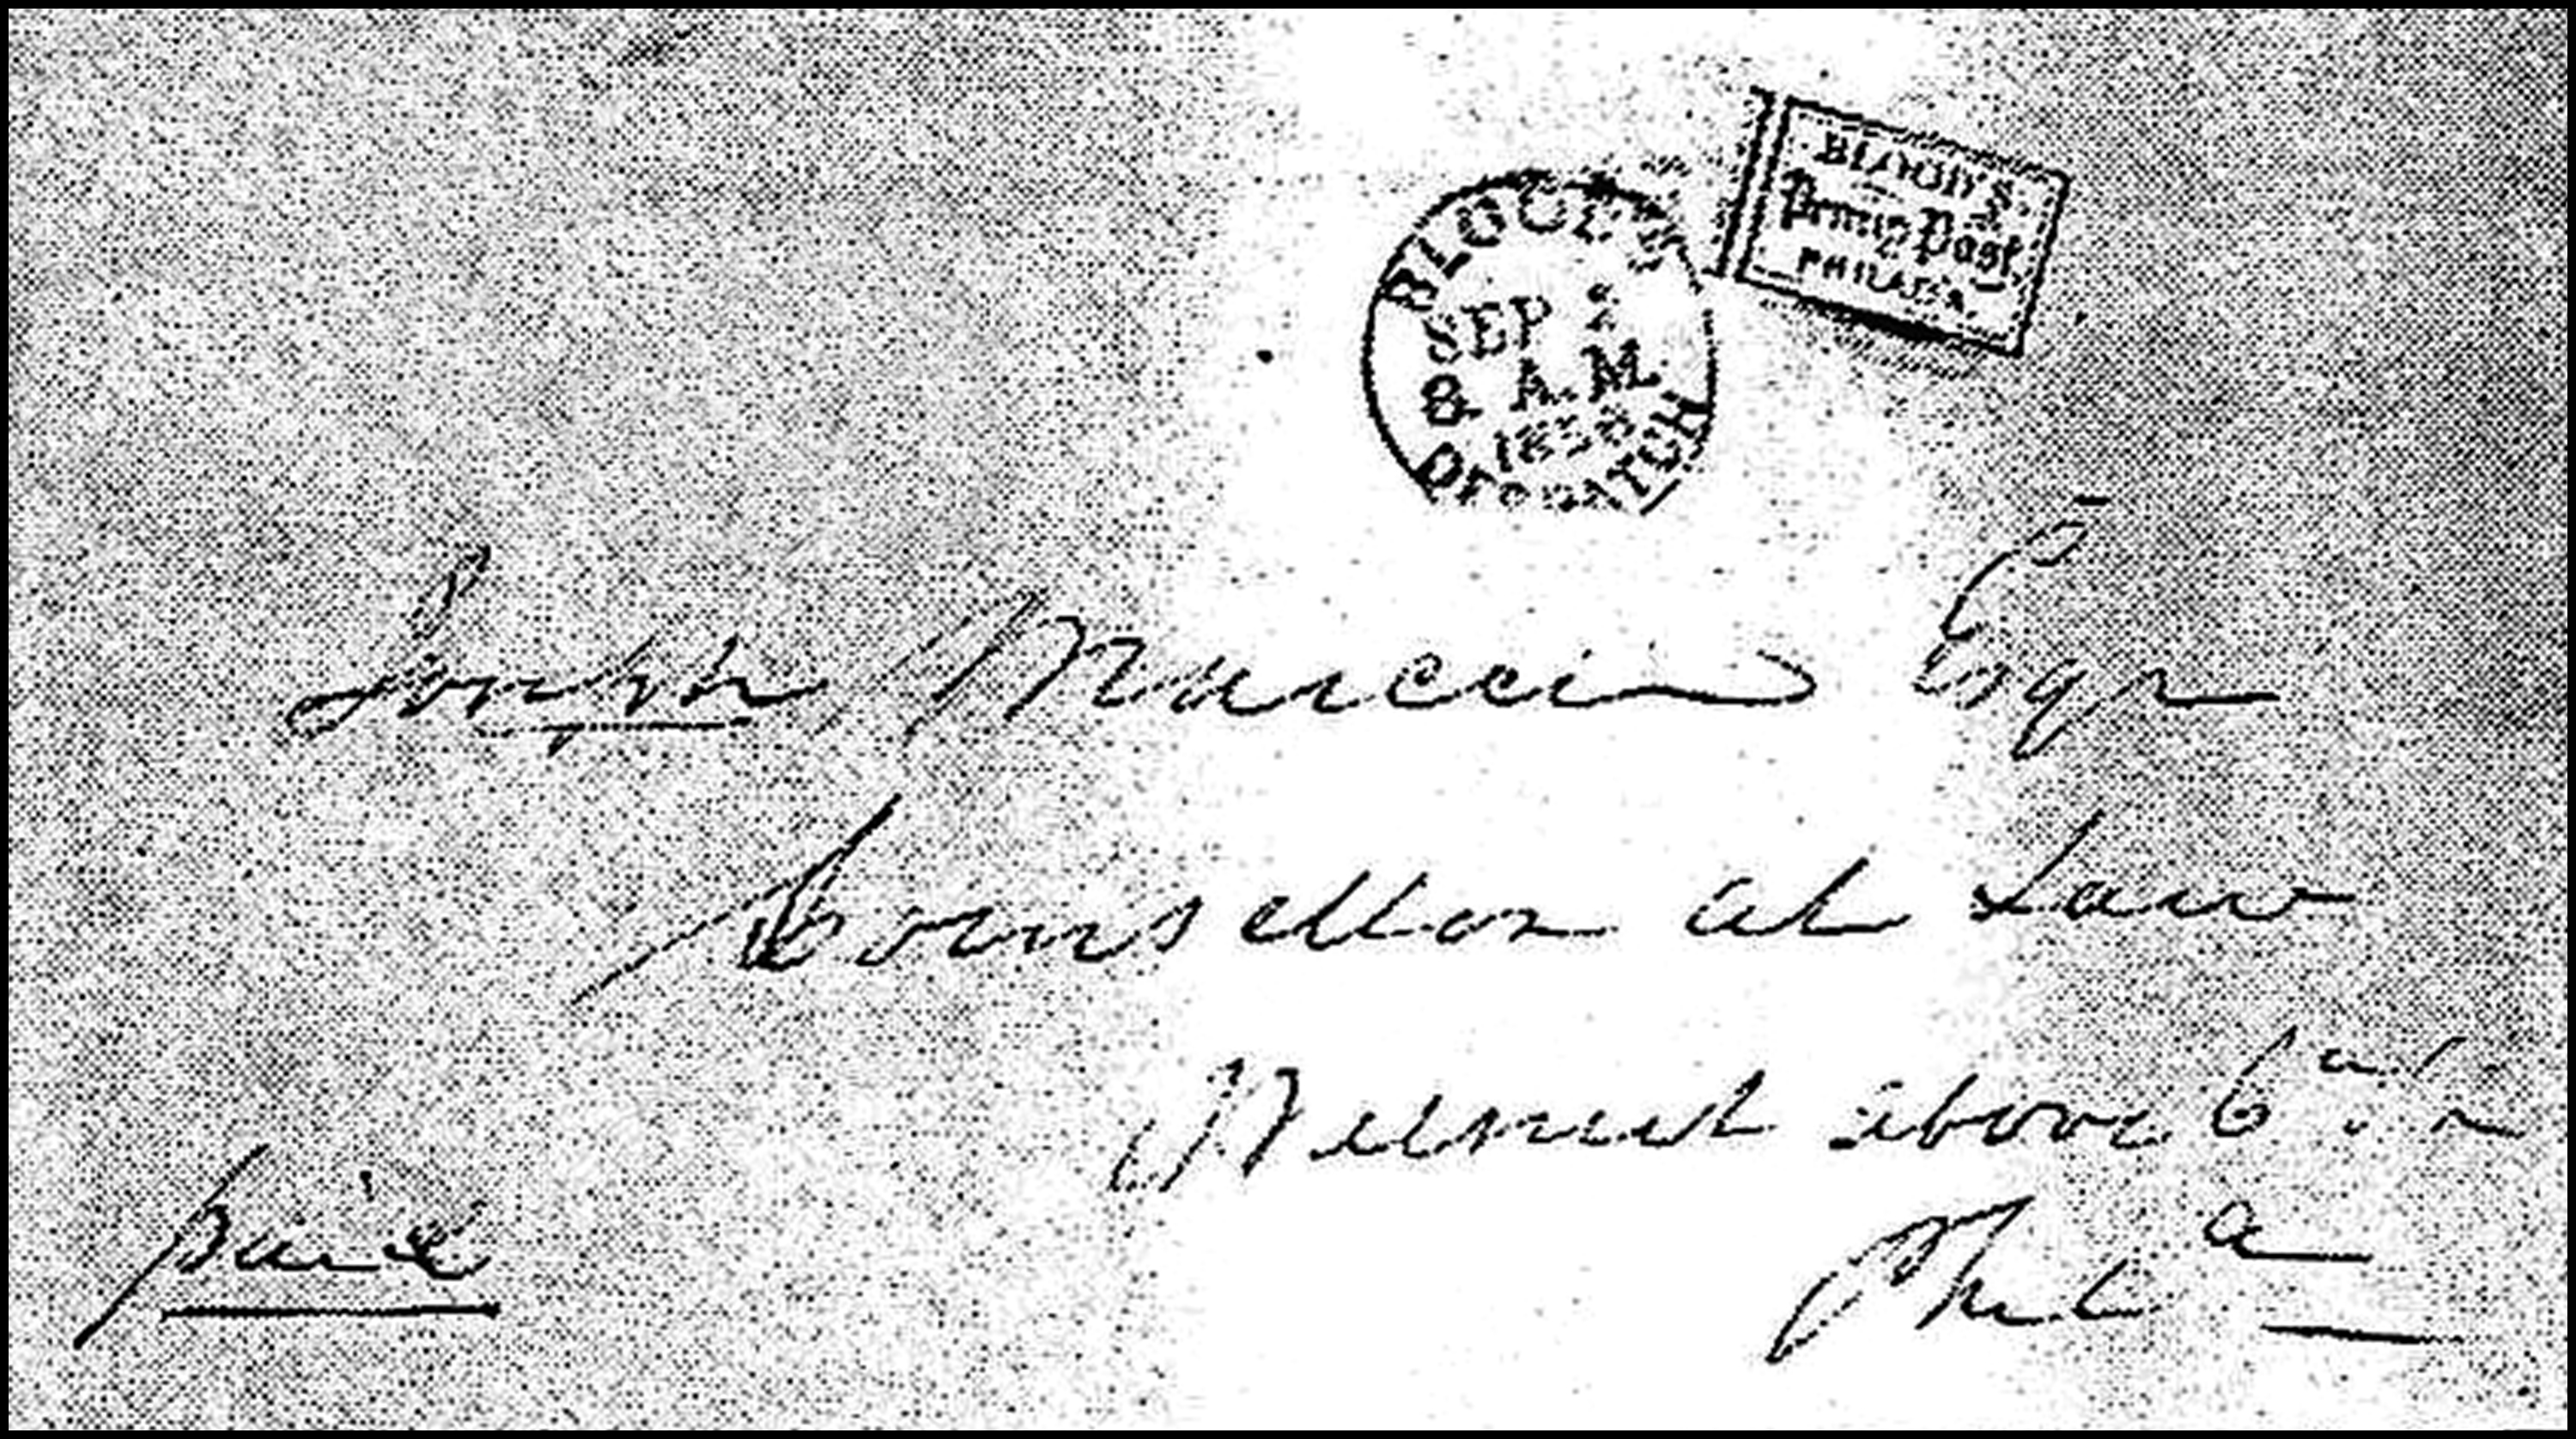 BLOOD'S
Penny Post,
PHILAD'A.
BLOOD'S
SEP 2
8 A.M.
1858
DESPATCH
Joseph Esqr
Counsellor at Law
above 6th
Phila
paid